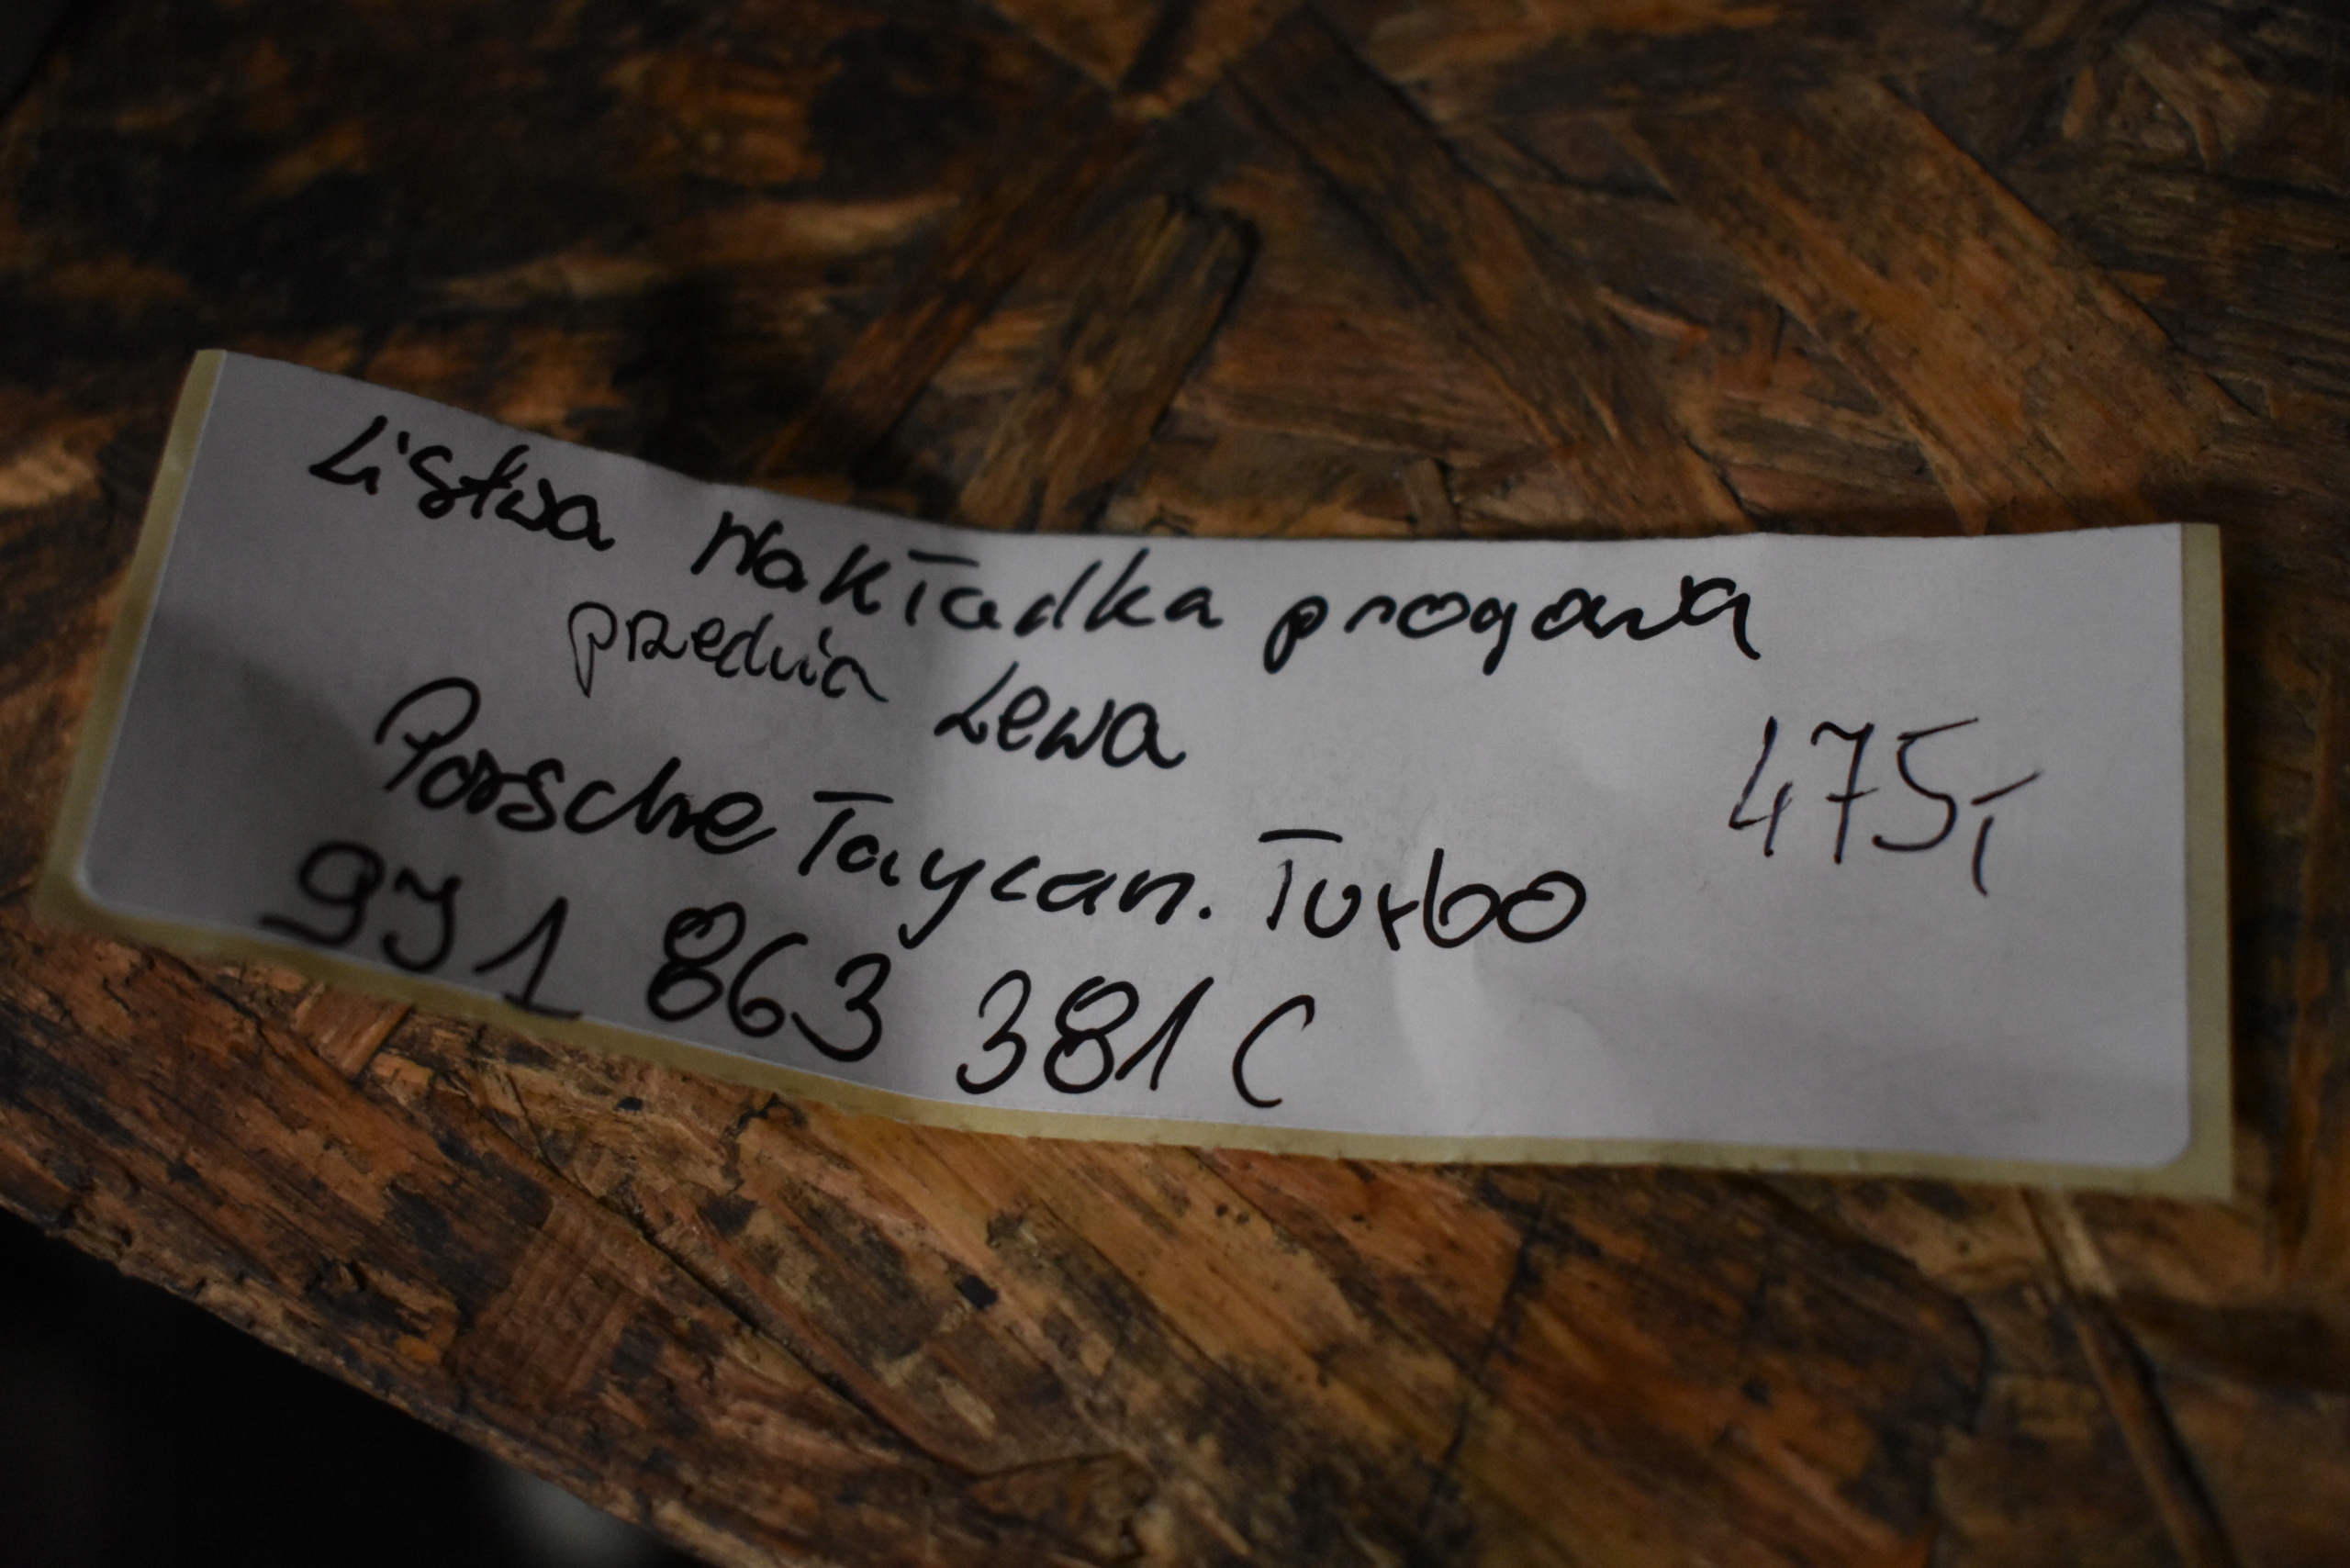 Listwa Nakładka progowa
przednia Lewa
475,-
Porsche Taycan. Turbo
9J1 863 381 C